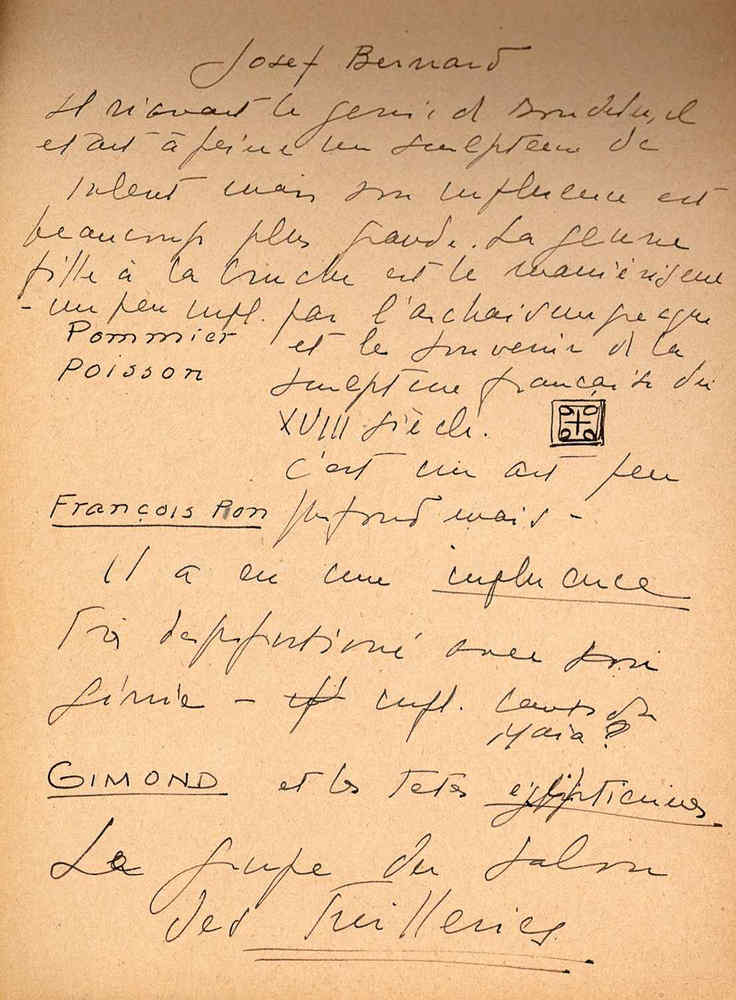 Josef Bernard
Il n'avait le genie de Bourdelle, il
etait à peine un sculpteur de
talent mais son influence est
beaucoup plus grande. La jeune
fille à la cruche est le maniérisme
- un peu infl. par l'archaisme grecque
Pommier et le souvenir de la
Poisson sculpture française du
XVIII siècle.
C'est un art peu
François Pon profond mais -
Il a eu une influence
Très disproportionné avec son
Génie - infl.
Maia?
GIMOND et les Tetes egyptiennes.
Le groupe du Salon
des Tuilleries